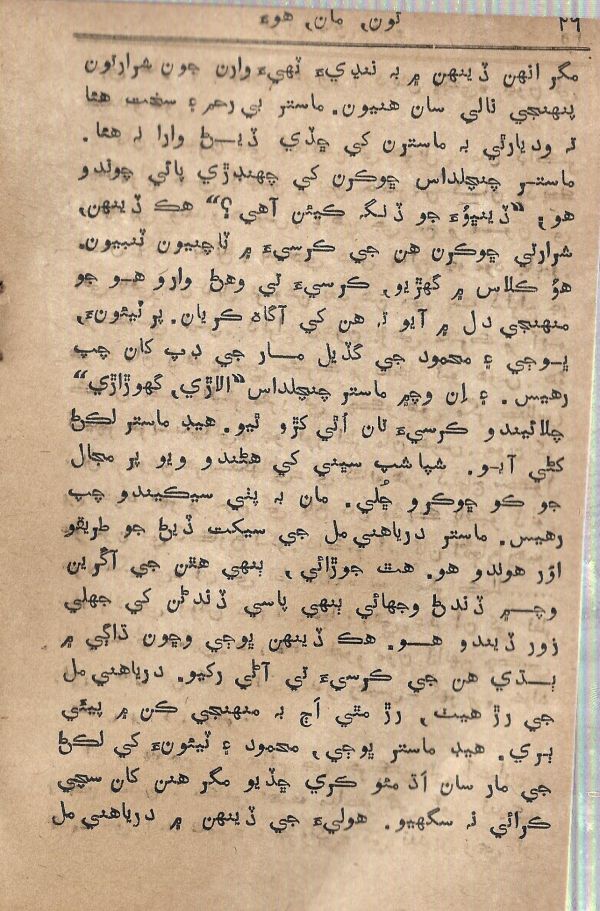 ٢٦ تون، مان، هوء
مگر انهن ڏينهن ۾ به ننڍيءَ ٽهيءَ وارن جون شرارتون
پنهنجي نالي سان هنيون. ماستر بي رحم ۽ سخت هئا
ته وديارٿي به ماسترن کي ڇڏي ڏيڻ وارا نه هئا.
ماستر چنچلداس ڇوڪرن کي چهنڊڙي پائي چوندو
هو، ”ڏينڀوءَ جو ڏنگ ڪيئن آهي؟“ هڪ ڏينهن،
شرارتي ڇوڪرن هن جي ڪرسيءَ ۾ ٽاچنيون ٽنبيون.
هو ڪلاس ۾ گهڙيو، ڪرسيءَ تي وهڻ وارو هو جو
منهنجي دل ۾ آيو ته هن کي آگاه ڪريان. پر ٽيئونءَ،
ڀوجي ۽ محمود جي گڏيل مار جي ڊپ کان چپ
رهيس. ۽ ان وچ۾ ماستر چنچلداس ”الاڙي، گهوڙاڙي“
چلائيندو ڪرسيءَ تان اُٿي کڙو ٿيو. هيڊ ماستر لڪڻ
کڻي آيو. شپاشپ سڀني کي هڻندو ويو پر مجال
جو ڪو ڇوڪرو چُلي. مان به پٺي سيڪيندو چپ
رهيس. ماستر درياهني مل جي سيکت ڏيڻ جو طريقو
اوَر هوندو هو. هٿ جوڙائي، ٻنهي هٿن جي آڱرين
وچ۾ ڏنڊڻ وجهائي ٻنهي پاسي ڏنڊڻن کي جهلي
زور ڏيندو هو. هڪ ڏينهن ڀوجي وڇون ڌاڳي ۾
ٻڌي هن جي ڪرسيءَ تي آڻي رکيو. درياهني مل
جي رڙ هيٺ، رڙ مٿي اَڄ به منهنجي ڪن ۾ پيئي
ٻري. هيڊ ماستر ڀوجي، محمود ۽ ٽيئونءَ کي لڪڻ
جي مار سان اَڌ مئو ڪري ڇڏيو مگر هنن کان سچي
ڪرائي نه سگهيو. هوليءَ جي ڏينهن ۾ درياهني مل